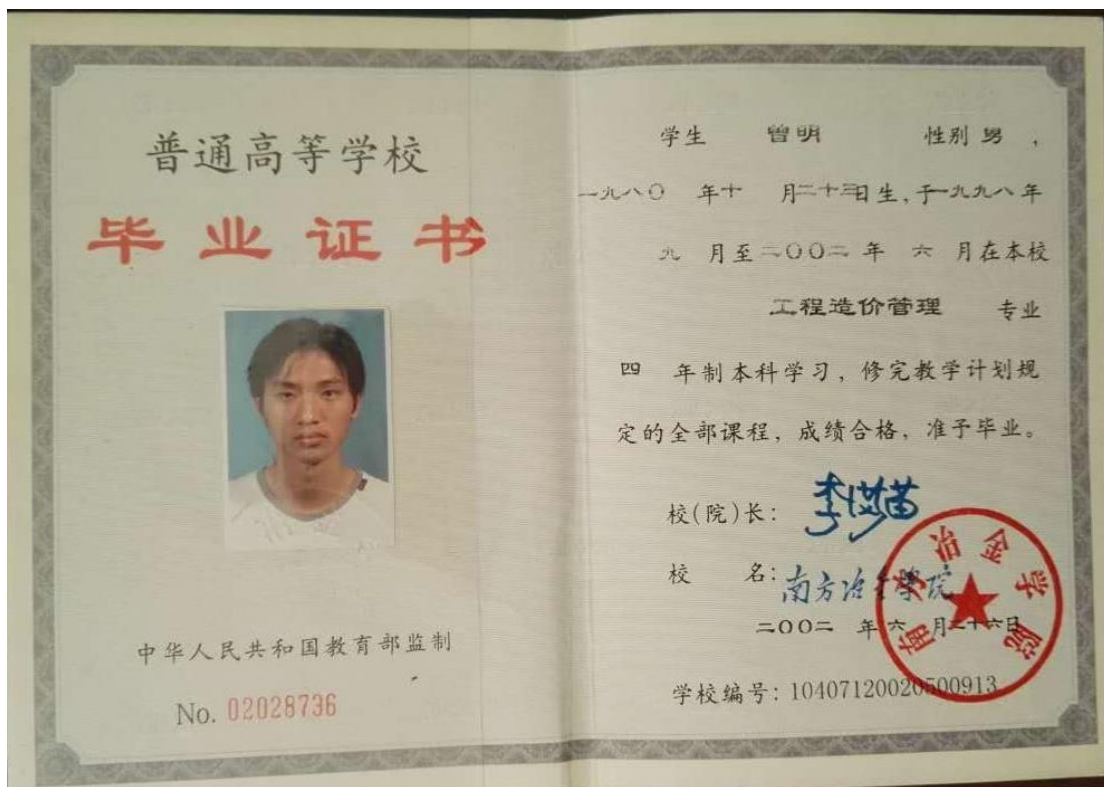 普通高等学校
毕业证书
中华人民共和国教育部监制
No. 02028736
学生 曾明 性别 男 ，
一九八〇 年十 月二十三日生，于一九九八年
九 月至二〇〇二 年 六 月在本校
工程造价管理 专业
四 年制本科学习，修完教学计划规
定的全部课程，成绩合格，准予毕业。
校(院)长：
校 名：南方冶金学院
二〇〇二 年 六 月二十六日
学校编号：10407120020500913
南方冶金学院